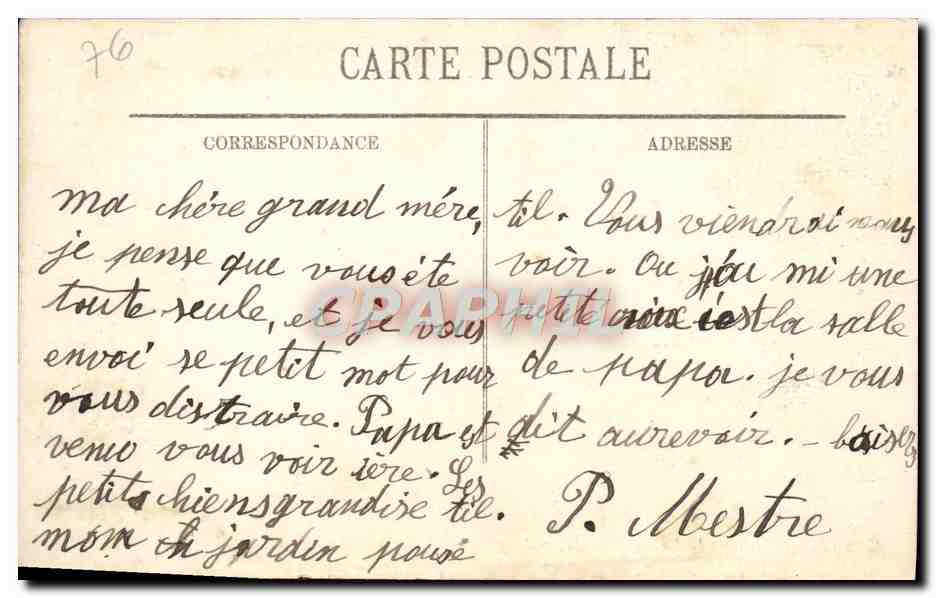 76
CARTE POSTALE
CORRESPONDANCE
ma chére grand mére,
je pense que vous éte
toute seule, et je vous
envoi se petit mot pour
vous distraire. Papa est
venu vous voir ière. Les
petits chiens grandise til.
mom jardin pouse
ADRESSE
til. Vous viendrai nous
voir. Ou j'ai mi une
petite croix c'est la salle
de papa. je vous
dit aurevoir. – baisers
P. Mestre